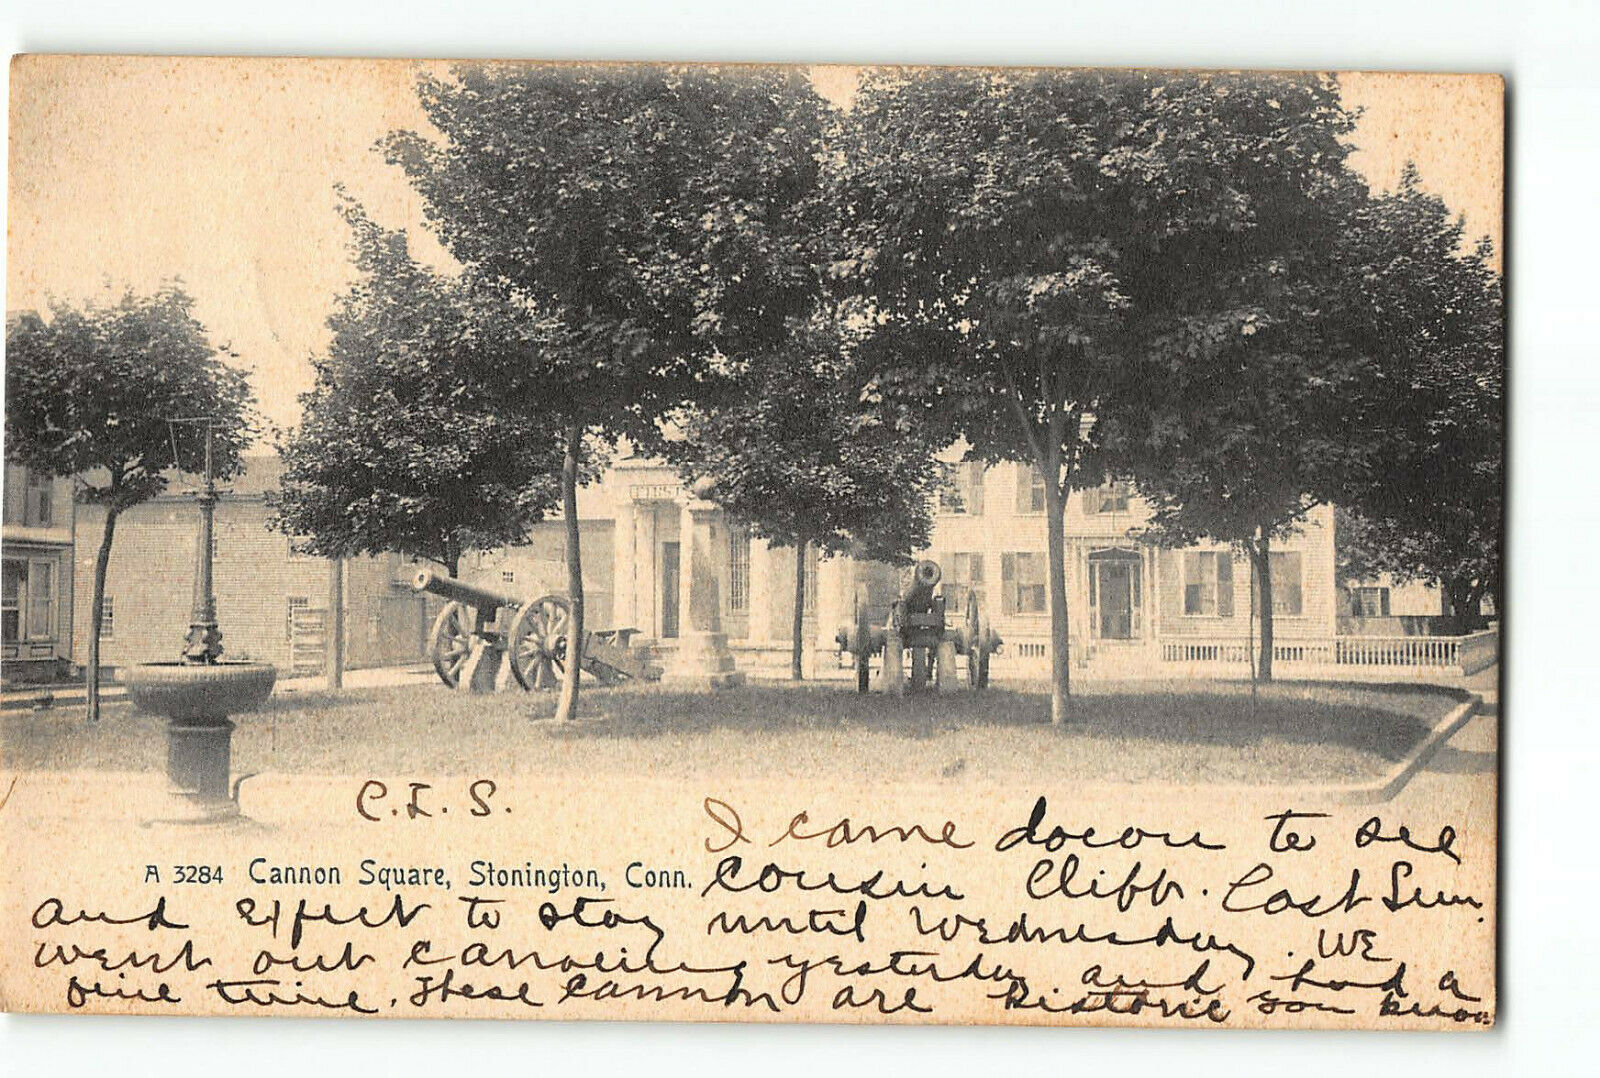 FIRST
C.I.S.
I came down to see
A 3284 Cannon Square, Stonington, Conn.
Cousin Cliff. Last Sun.
and expect to stay until Wednesday. WE
went out canoeing yesterday and had a
fine time. These cannon are historic you know